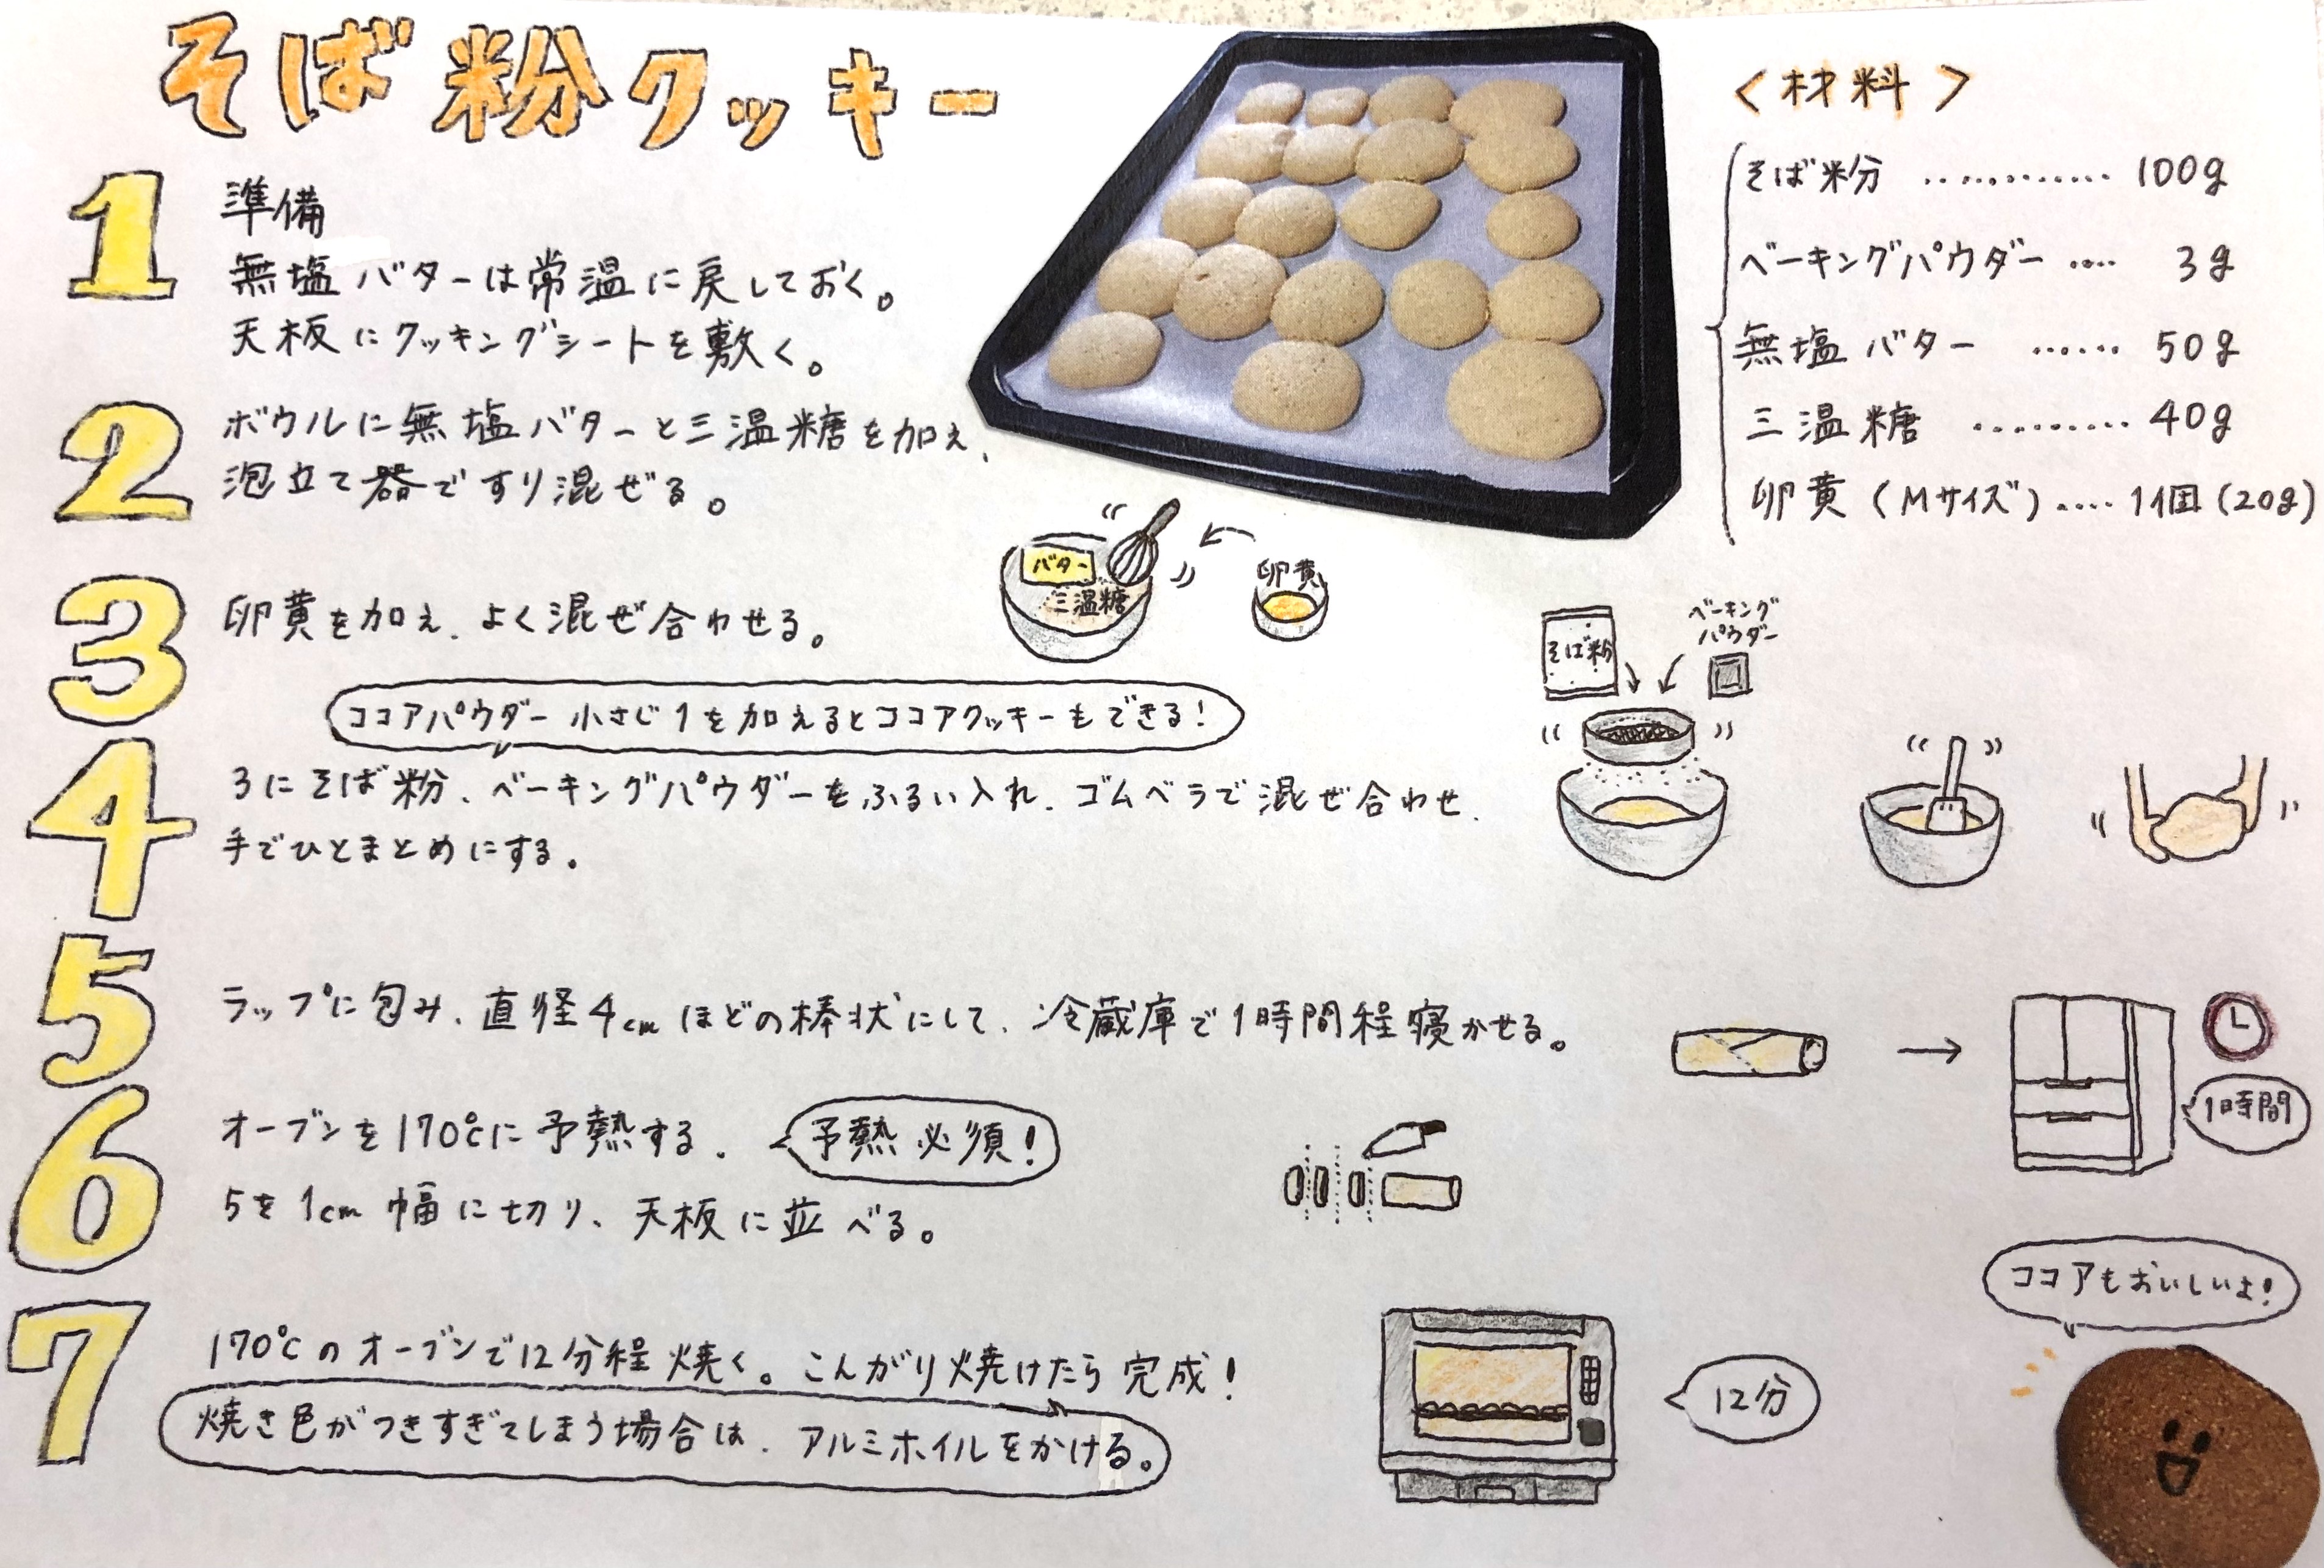 そば粉クッキー
<材料>
そば粉 ............ 100g
ベーキングパウダー .... 3g
無塩バター ...... 50g
三温糖 ......... 40g
卵黄(Mサイズ).... 1個(20g)
1
準備
無塩バターは常温に戻しておく。
天板にクッキングシートを敷く。
2
ボウルに無塩バターと三温糖を加え、
泡立て器ですり混ぜる。
バター
三温糖
卵黄
3
卵黄を加え、よく混ぜ合わせる。
ココアパウダー小さじ1を加えるとココアクッキーもできる!
4
3にそば粉、ベーキングパウダーをふるい入れ、ゴムベラで混ぜ合わせ、
手でひとまとめにする。
そば粉
ベーキング
パウダー
5
ラップに包み、直径4cmほどの棒状にして、冷蔵庫で1時間程寝かせる。
1時間
6
オーブンを170℃に予熱する、
予熱必須!
5を1cm幅に切り、天板に並べる。
7
170℃のオーブンで12分程焼く。こんがり焼けたら完成!
焼き色がつきすぎてしまう場合は、アルミホイルをかける。
12分
ココアもおいしいよ!